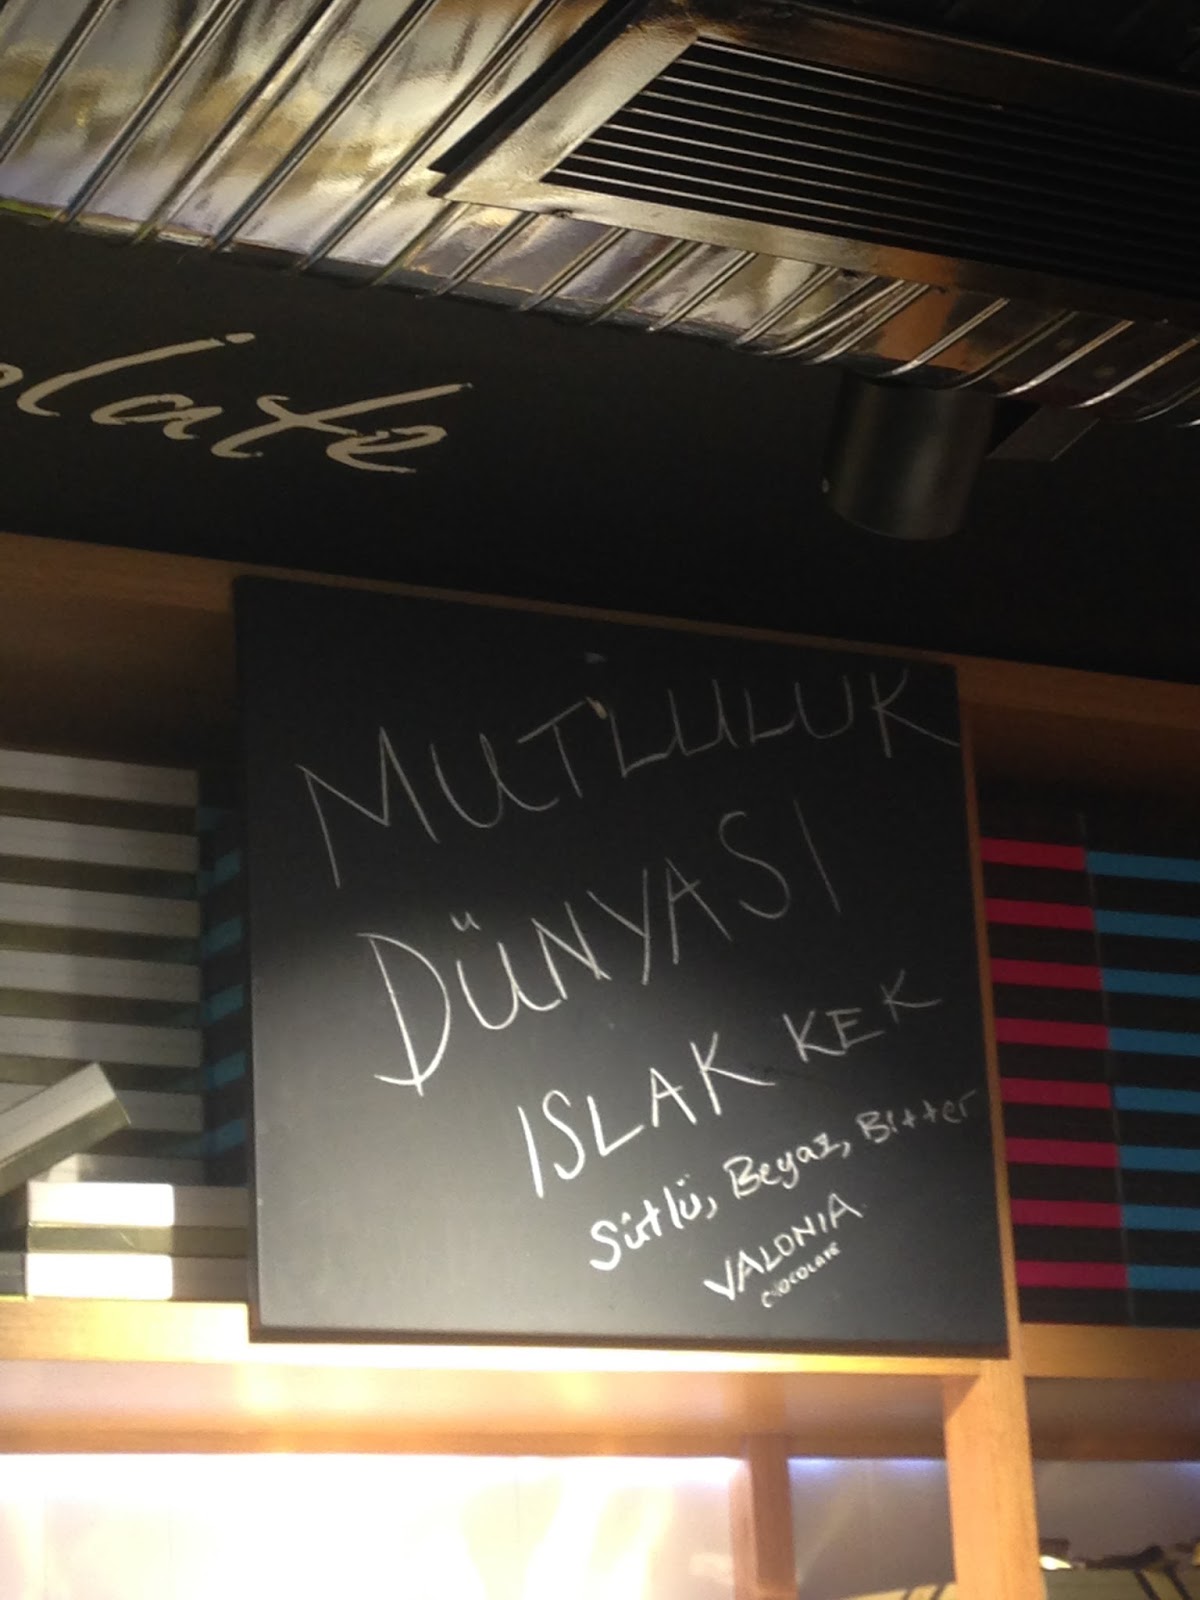 olate
MUTLULUK
DÜNYASI
ISLAK KEK
Sütlü, Beyaz, Bitter
VALONIA
CHOCOLATE